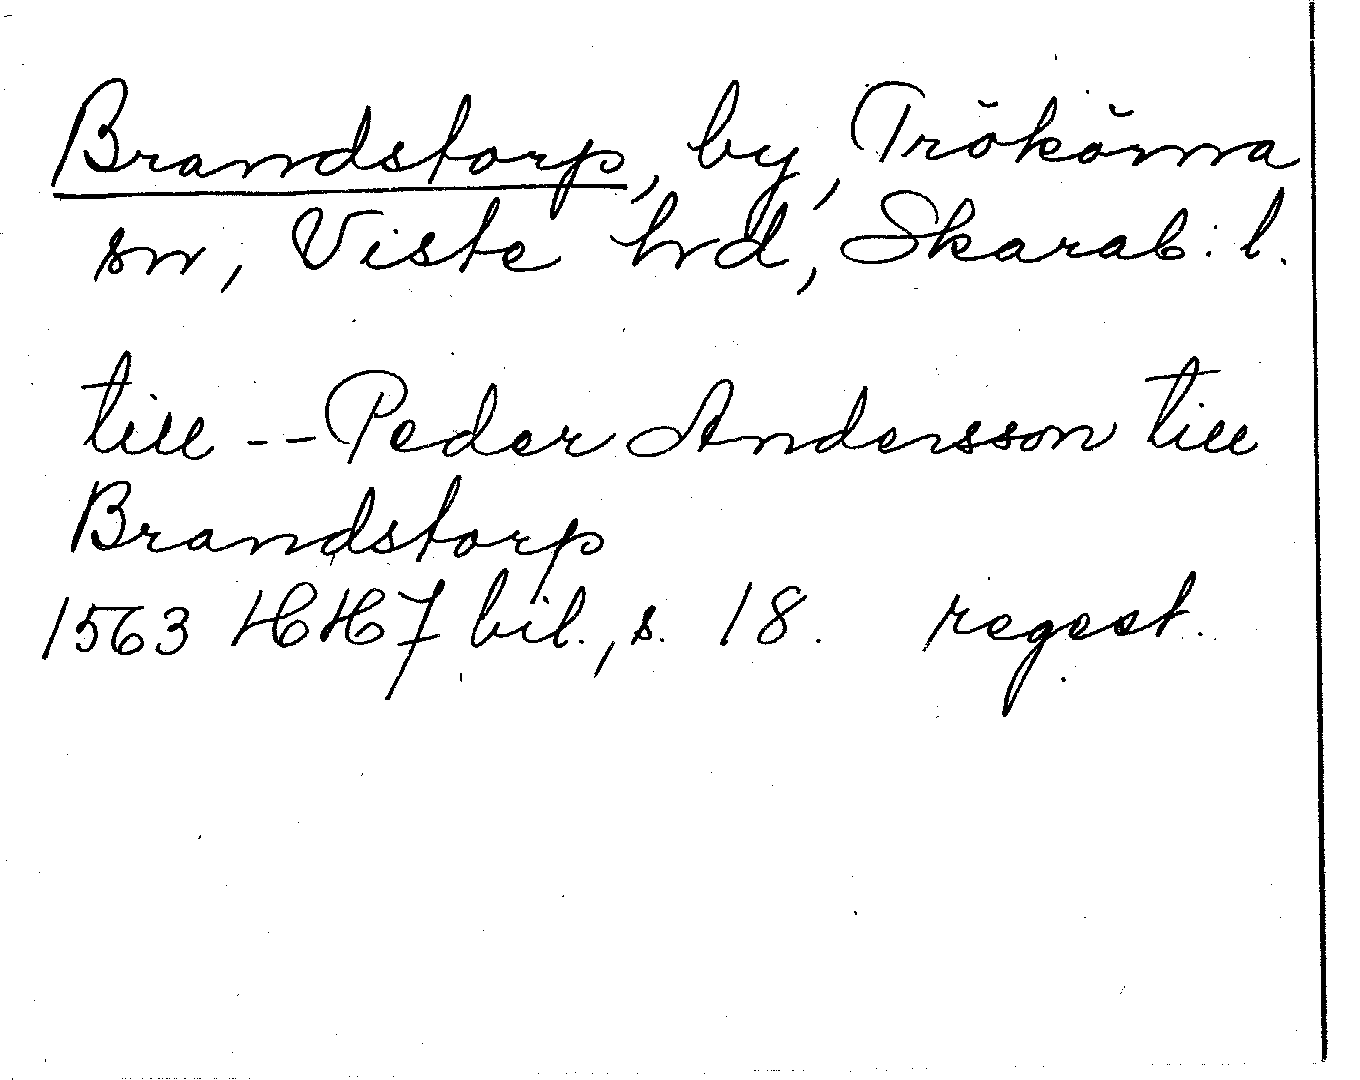 Brandstorp, by, Trökörna
sn, Viste hrd, Skarab. l.
till -- Peder Andersson till
Brandstorp
1563 HH 7 bil., s. 18. regest.